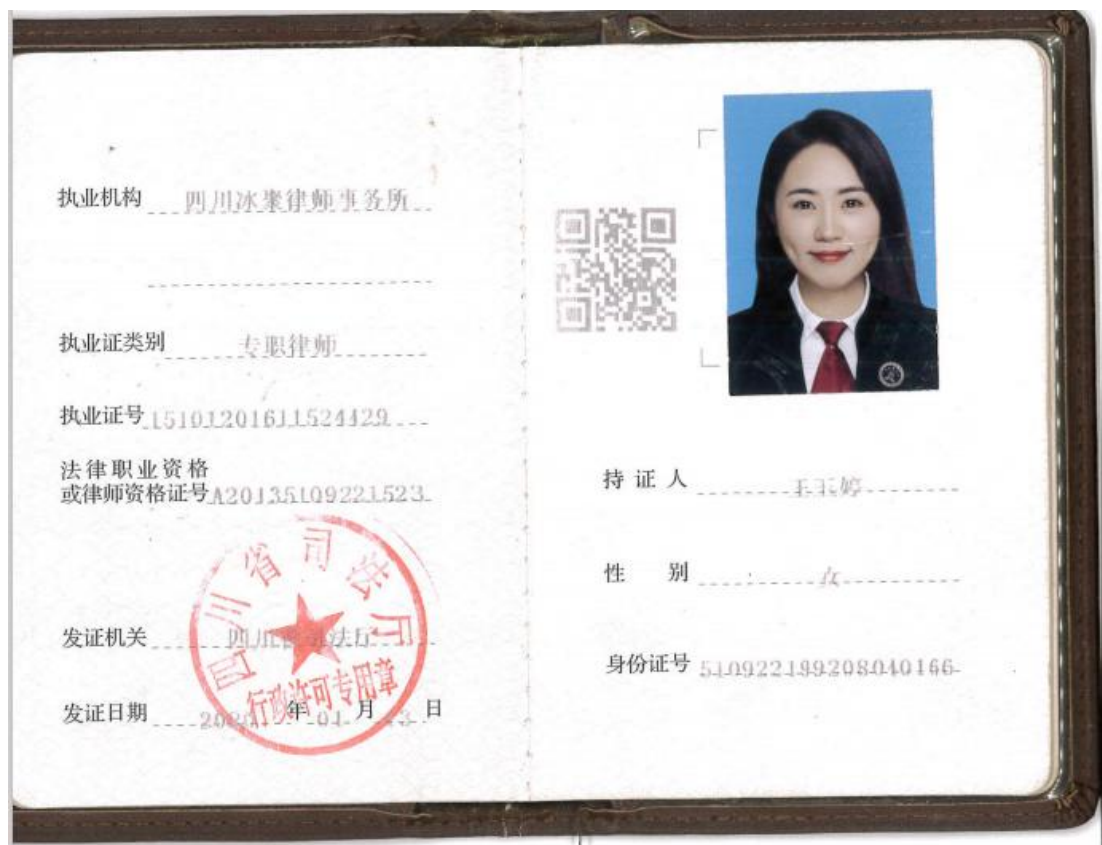 执业机构 四川冰聚律师事务所
执业证类别 专职律师
执业证号 15101201611524429
法律职业资格
或律师资格证号 A20135109221523
四川省司法厅
行政许可专用章
发证机关 四川省司法厅
发证日期 年 01 月 日
持证人
性别 女
身份证号 510922199208040166